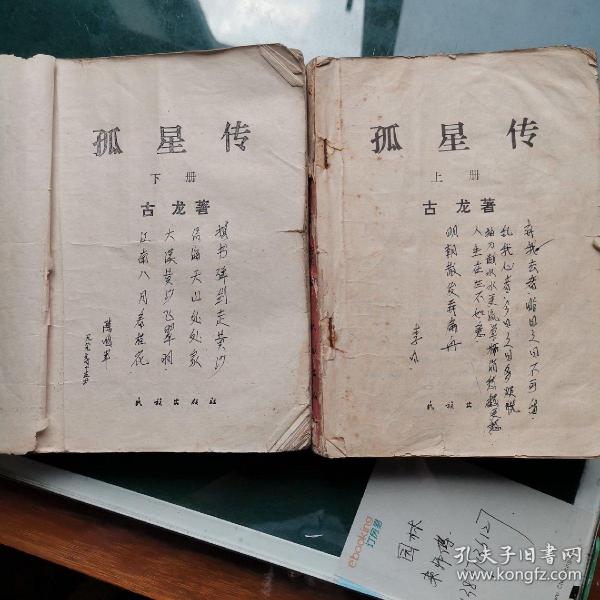 孤星传
下册
古龙著
携书弹剑走黄沙
瀚海天山处处家
大漠黄沙飞翠羽
江南八月看桂花
民族出版社
孤星传
上册
古龙著
弃我去者昨日之日不可留
乱我心者今日之日多烦忧
抽刀断水水更流
人生在世不如意
明朝散发弄扁舟
李白
民族出版社
ebooking
订房易
园林
孔夫子旧书网
www.kongfz.com